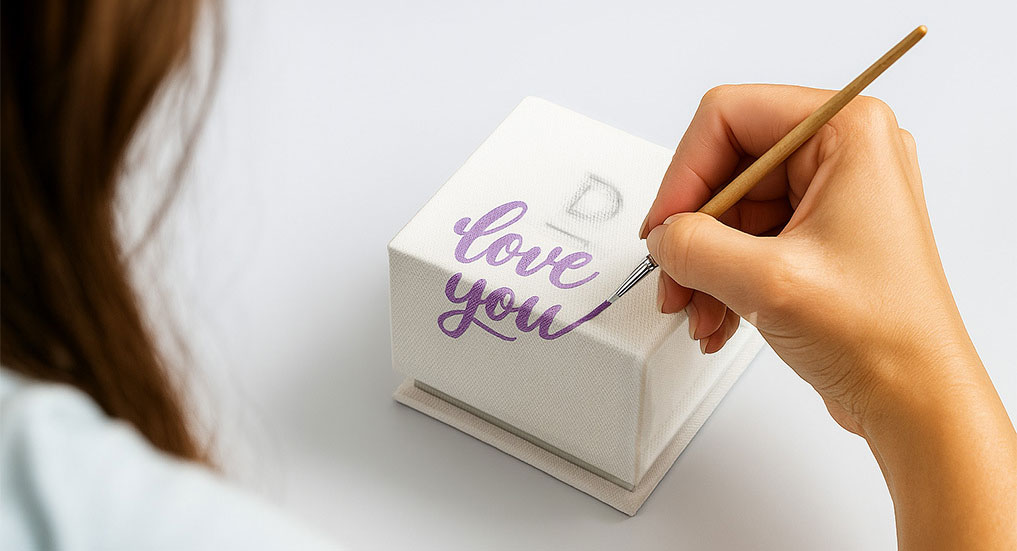 D
love
you